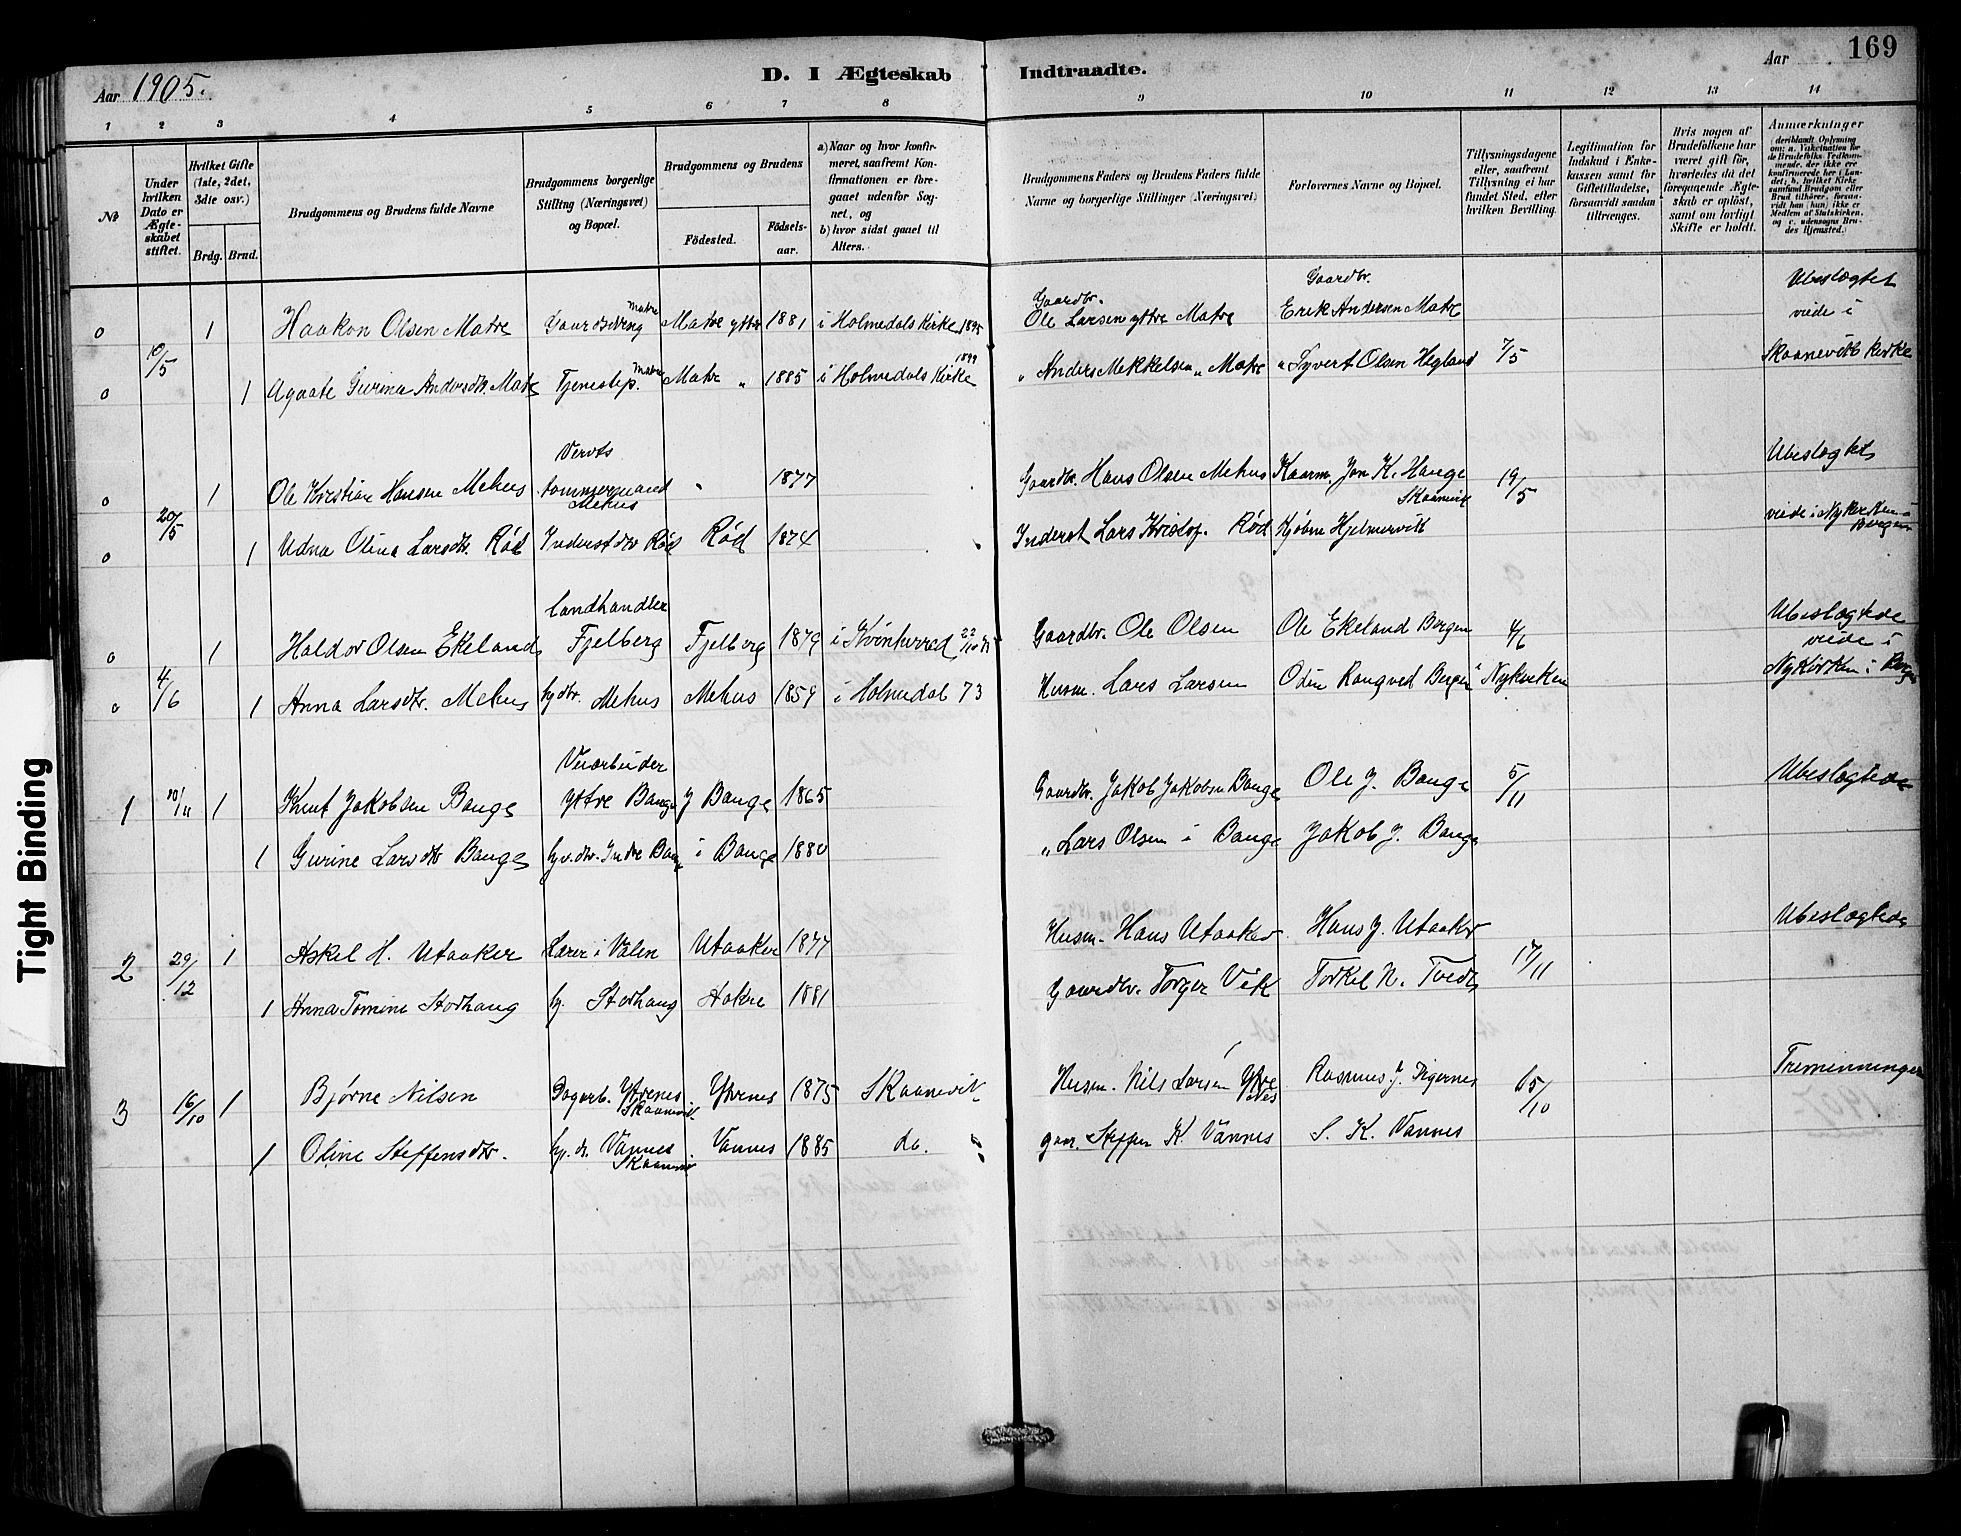 Aar 1905.
D. I Ægteskab Indtraadte.
Aar
169
1 2 3 4 5 6 7 8 9 10 11 12 13 14
No
Under hvilken Dato er Ægteskabet stiftet.
Hvilket Gifte (1ste, 2det, 3die osv.)
Brdg. Brud.
Brudgommens og Brudens fulde Navne
Brudgommens borgerlige Stilling (Næringsvei) og Bopæl.
Brudgommens og Brudens
Födested.
Födselsaar.
a) Naar og hvor konfirmeret, saafremt Konfirmationen er foregaaet udenfor Sognet, og
b) hvor sidst gaaet til Alters.
Brudgommens Faders og Brudens Faders fulde Navne og borgerlige Stillinger (Næringsvei)
Forlovernes Navne og Bopæl.
Tillysningsdagene eller, saafremt Tillysning ei har fundet Sted, efter hvilken Bevilling.
Legitimation for Indskud i Enkekassen samt for Giftetilladelse, forsaavidt saadan tiltrænges.
Hvis nogen af Brudefolkene har været gift för, hvorledes da det foregaaende Ægteskab er oplöst, samt om lovligt Skifte er holdt.
Anmærkninger
(deriblandt Oplysning om: a. Vakcination for de Brudefolks Vedkommende, der ikke ere konfirmerede her i Landet, b. hvilket Kirkesamfund Brudgom eller Brud tilhører, forsaavidt han (hun) ikke er Medlem af Statskirken, og c. udensogns Brudes Hjemsted.)
o 10/5 1 Haakon Olsen Matre Matre Matre ytre 1881 i Holmedals Kirke 1895 Gaardbr. Ole Larsen ytre Matre Gaardbr. Erik Andersen Matre 7/5 Ubeslægtet viede i Skaanevik kirke
o 1 Agaate Gurina Andersdtr. Matre Tjenestep. Matre Matre " 1885 i Holmedals Kirke 1899 " Anders Mikkelsen " Matre " Tyvert Olsen Hegland
o 20/5 1 Ole Kristian Hansen Mehus Mehus " 1877 Gaardbr. Hans Olsen Mehus Kaarm. Jon K. Hauge Skaanevik 19/5 Ubeslægtet viede i Nykirken i Bergen
o 1 Udna Olina Larsdtr. Rød Inderst dtr Rød Rød 1874 Inderst Lars Kristof. Rød Hjelmervik
o 4/6 1 Haldor Olsen Ekeland Landhandler Fjelberg Fjelberg 1879 i Kvinherred 22/10 Gaardbr. Ole Olsen Ole Ekeland Bergen 4/6 Ubeslægtede viede i Nykirken i Bergen
o 1 Anna Larsdtr. Mehus Mehus Mehus 1859 i Holmedal 73 Husm. Lars Larsen Odin Rongved Bergen i Nykirken
1 10/11 1 Knut Jakobsen Bauge Veiarbeider Ytre Bauge Y Bauge 1865 Gaardbr. Jakob Jakobsen Bauge Ole J. Bauge 5/11 Ubeslægtede
1 Gurine Larsdtr Bauge Gr.dtr. Indre Bauge i Bauge 1880 " Lars Olsen i Bauge Jakob J. Bauge
2 29/12 1 Askel H. Utaaker Lærer i Valen Utaaker 1877 Husm. Hans Utaaker Hans J. Utaaker 17/11 Ubeslægtede
1 Anna Tomine Storhaug Storhaug Hakre 1881 Gaardbr. Torger Vik Torkel N. Tvedt
3 16/10 1 Bjørne Nilsen Dagarb. Ytrenes Skaanevik Ytrenes 1875 Skaanevik Husm. Nils Larsen Ytre nes Rasmus J. 15/10 Tremenninger
1 Oline Steffensdtr. Vannes Skaanevik Vannes 1885 do. Steffen K. Vannes S. K. Vannes
Tight Binding